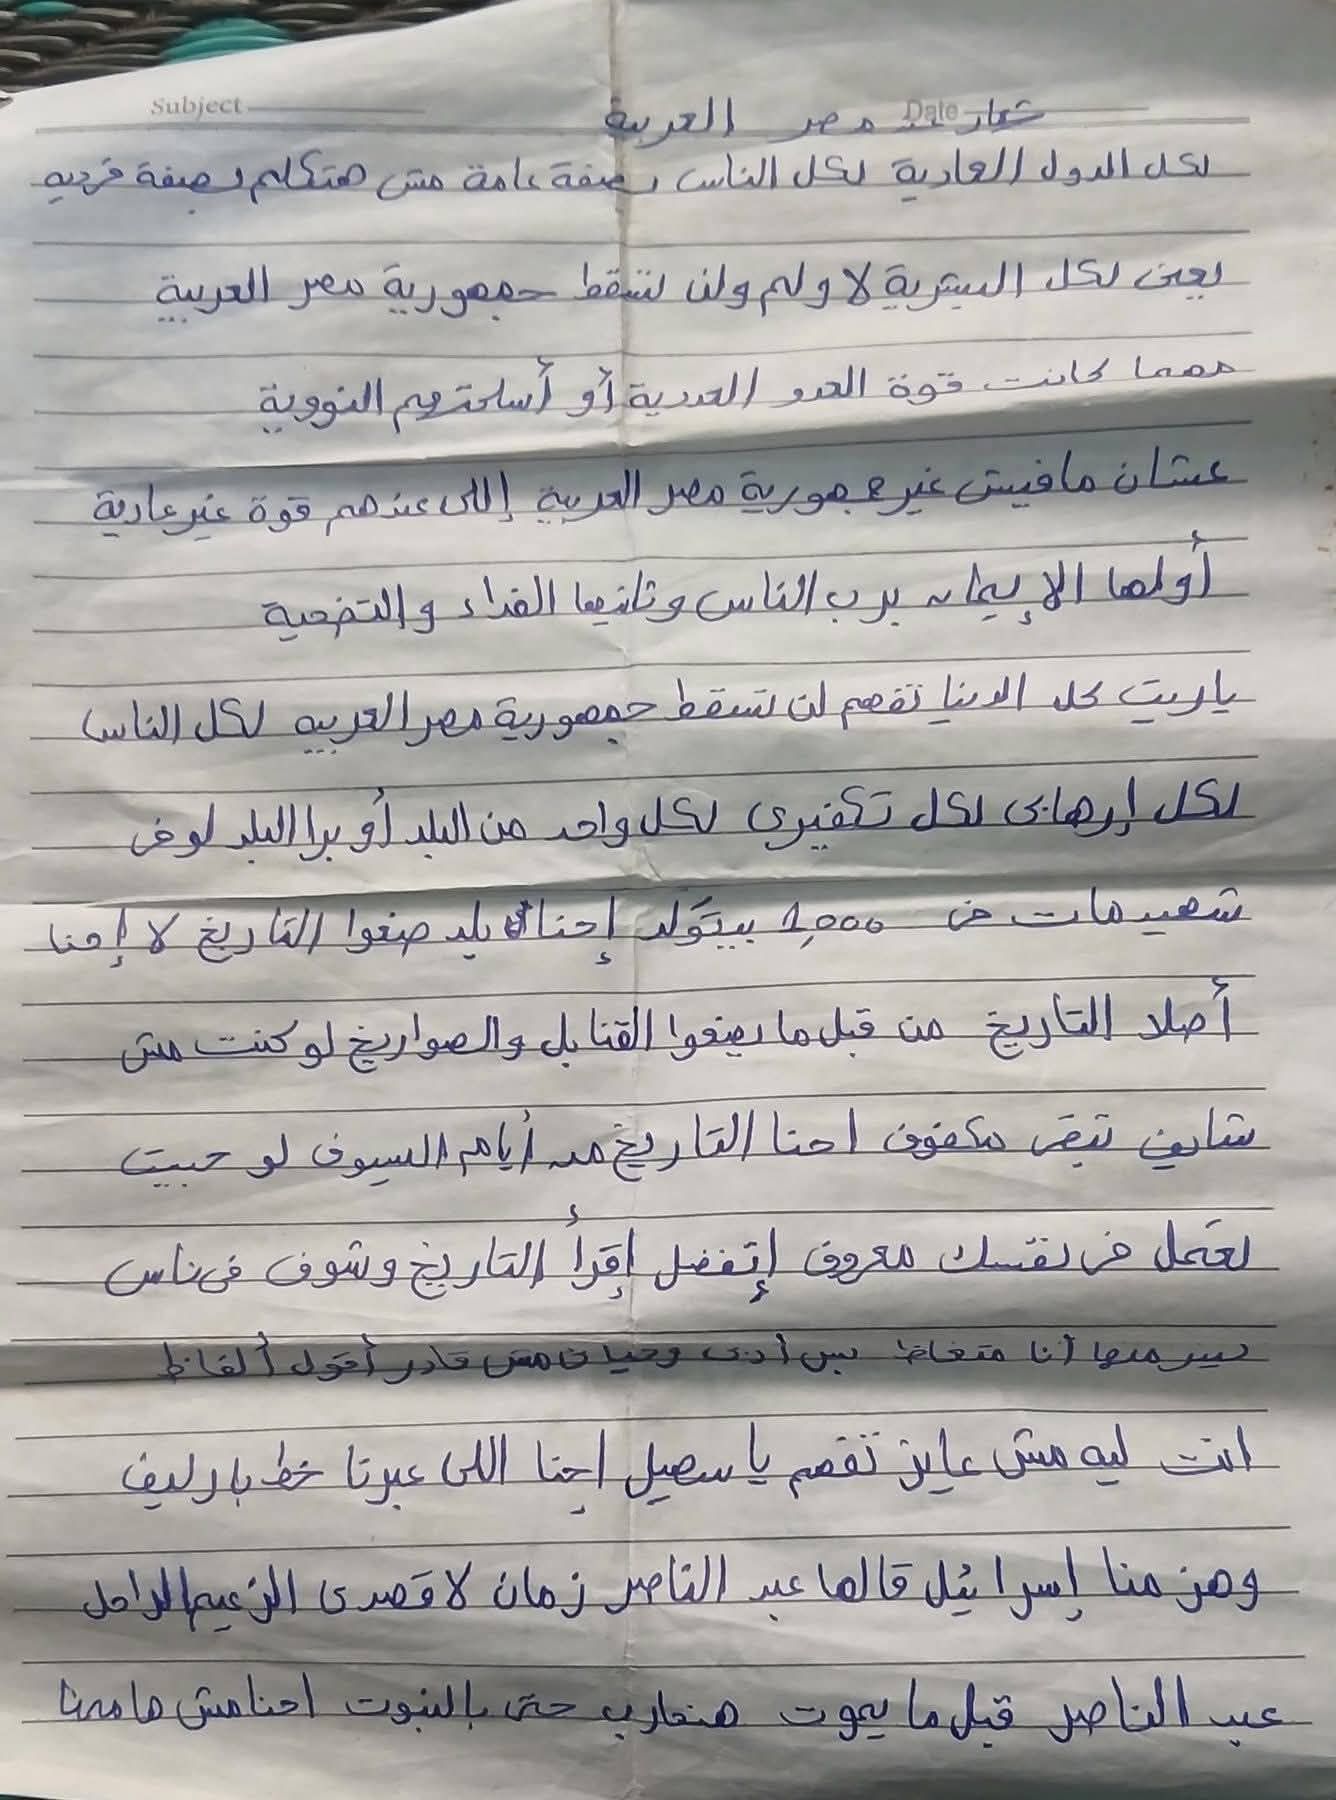 Subject
Date
شعار مصر العربية
لكل الدول العادية لكل الناس بصفة عامة مش هتكلم بصفة فرديه
يعنى لكل البشرية لا ولم ولن تسقط جمهورية مصر العربية
مهما كانت قوة العدو العددية أو أسلحتهم النووية
عشان مافيش غير جمهورية مصر العربية إللى عندهم قوة غير عادية
أولها الإيمان برب الناس وثانيها الفداء والتضحية
ياريت كل الدنيا تفهم لن تسقط جمهورية مصر العربيه لكل الناس
لكل إرهابى لكل تكفيرى لكل واحد من البلد أو برا البلد لو فى
شهيد مات فى 1,000 بيتولد إحنا بلد صنعوا التاريخ لا إحنا
أصلا التاريخ من قبل ما يصنعوا القنابل والصواريخ لو كنت مش
شايف تبقى مكفوف احنا التاريخ من أيام السيوف لو حبيت
تعمل فى نفسك معروف إتفضل إقرأ التاريخ وشوف فى ناس
أنا متغاظ بس أدبى وحيائى مش قادر أقول ألفاظ
انت ليه مش عايز تفهم يا سهيل إحنا اللى عبرنا خط بارليف
وهزمنا إسرائيل قالها عبد الناصر زمان لا قصدى الزعيم الراحل
عبد الناصر قبل ما يموت هنحارب حتى بالنبوت احنا مش هامنا